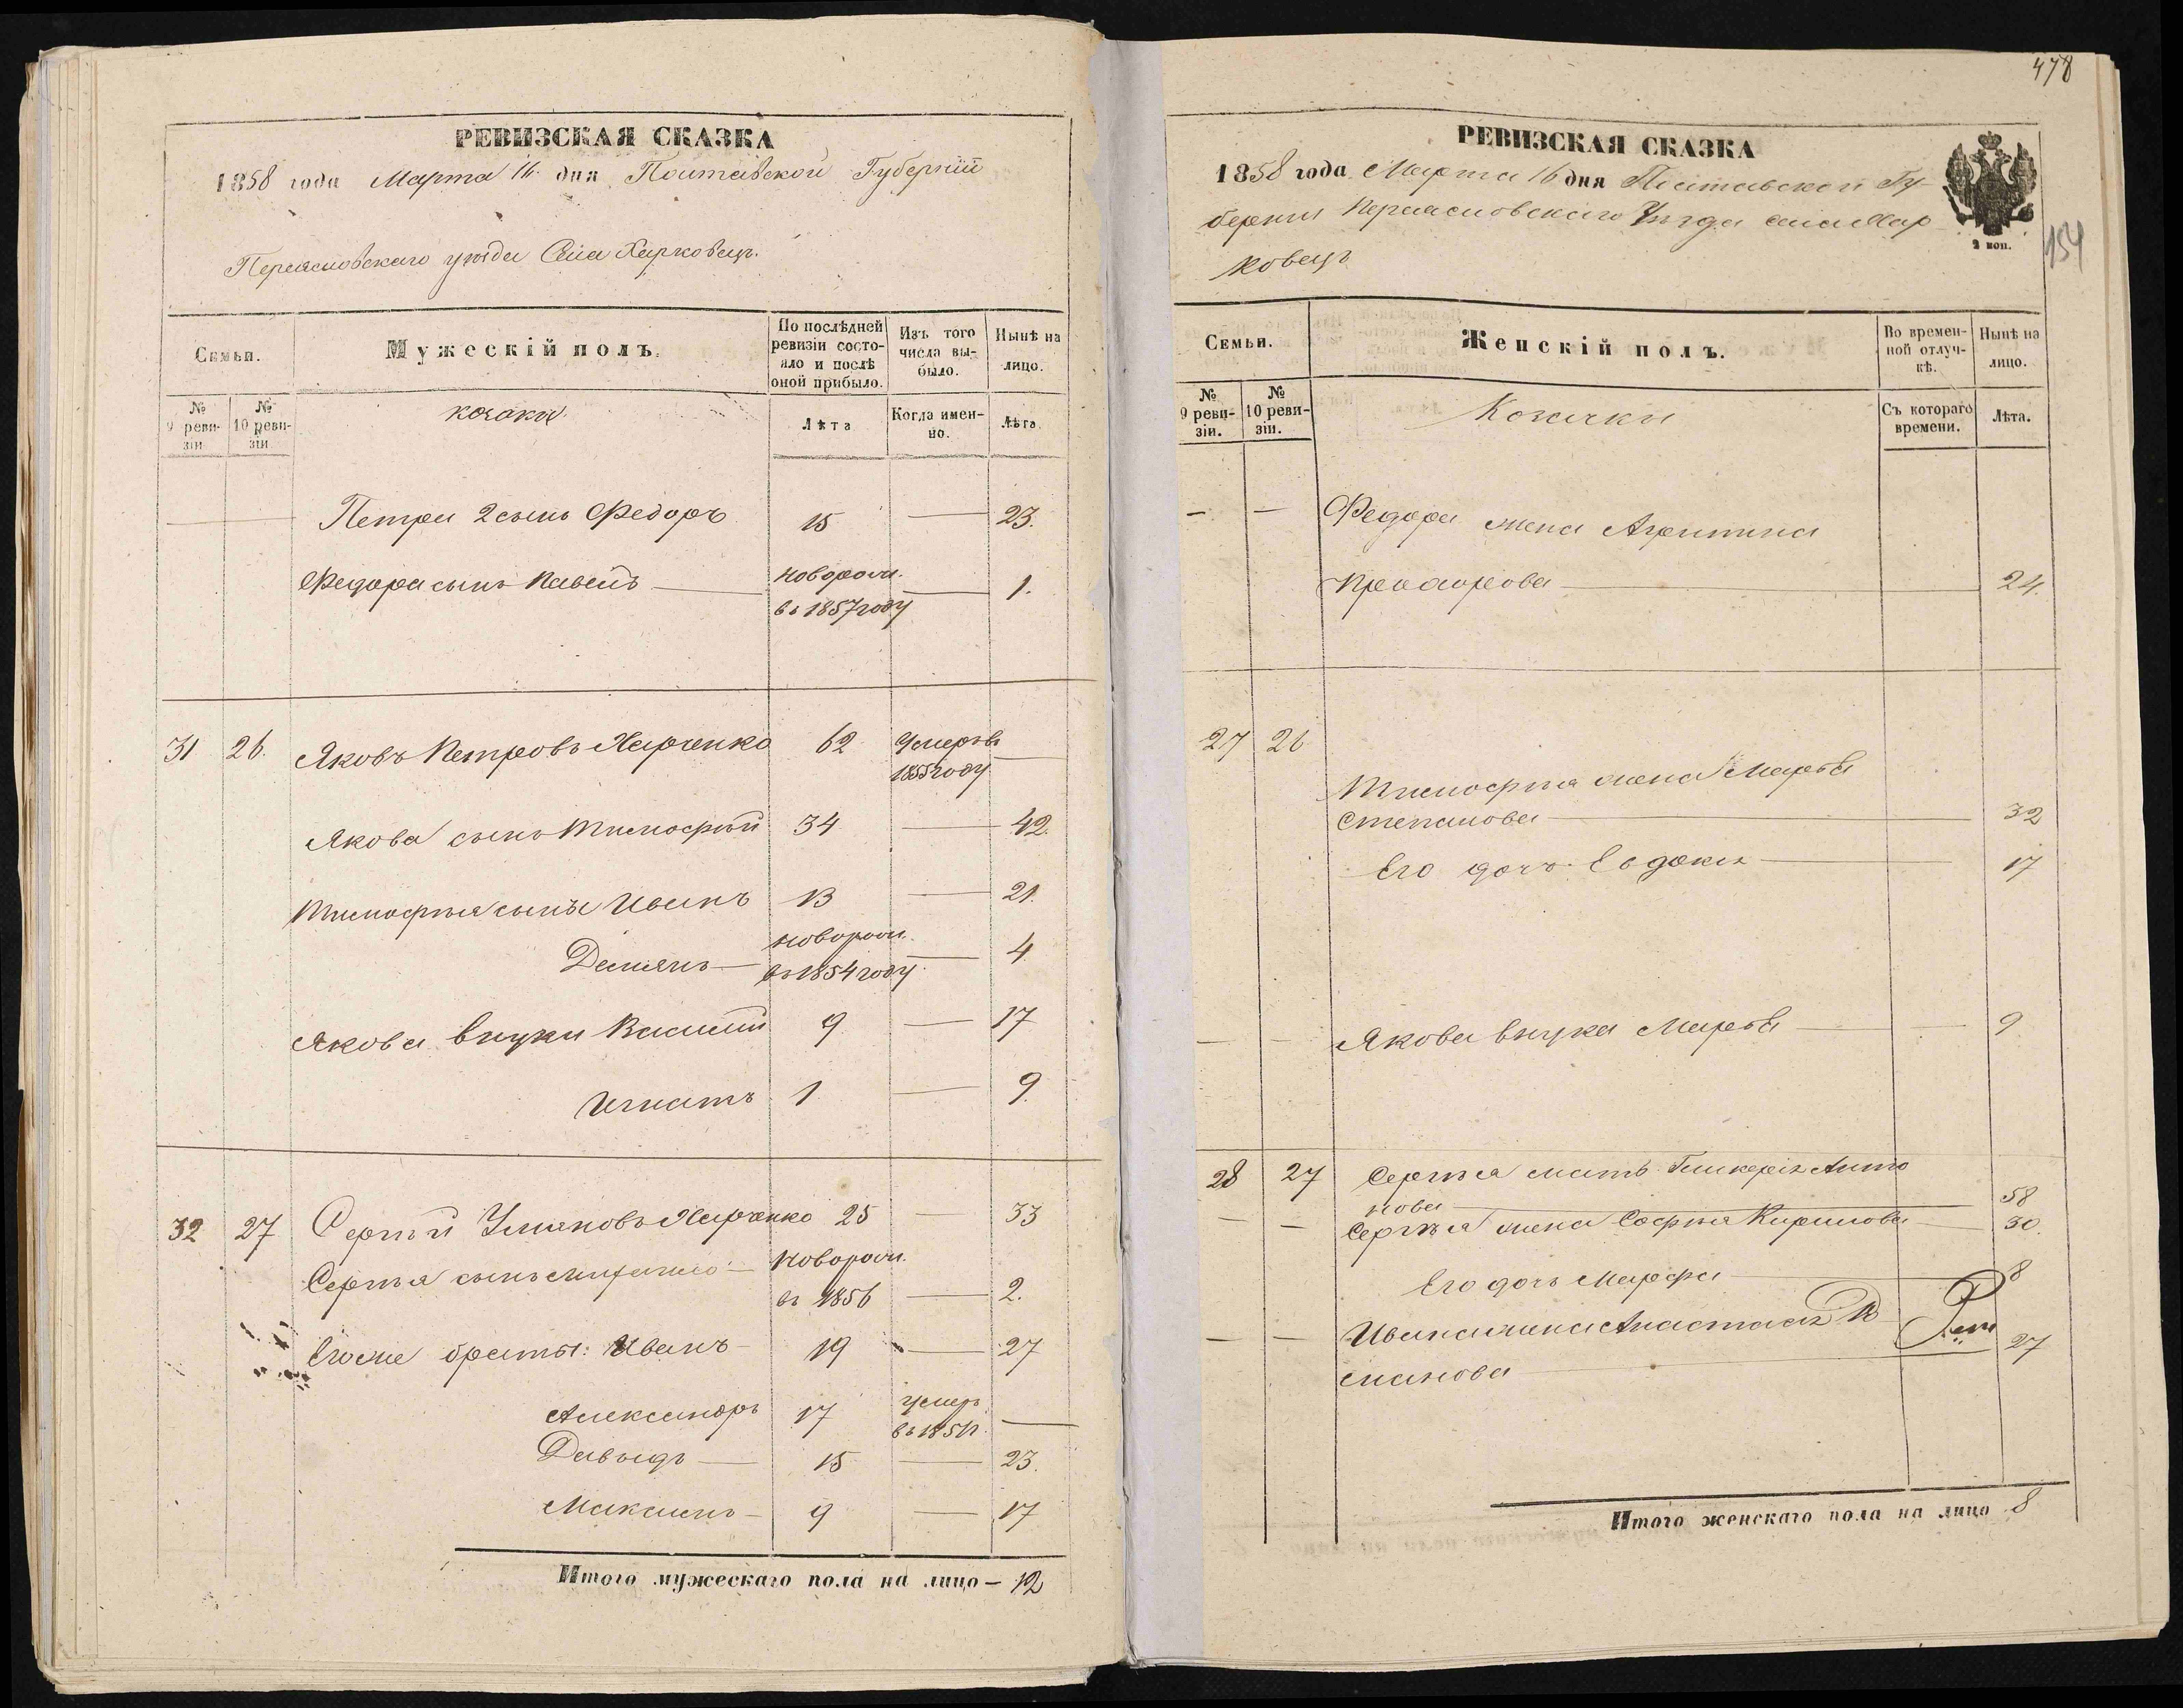 РЕВИЗСКАЯ СКАЗКА
1858 года Марта 16 дня Полтавской Губерніи
Переясловскаго уѣзда Села Харковецъ.
Семьи.
Мужескій полъ.
По послѣдней ревизіи состояло и послѣ оной прибыло.
Изъ того числа выбыло.
Нынѣ на лицо.
№ 9 ревизіи
№ 10 ревизіи
козаки.
Лѣта
Когда именно.
Лѣта
Петра 2 сынъ Федоръ 15 — 23.
Федора сынъ Павелъ — новорож. въ 1857 году — 1.
31 26. Яковъ Петровъ Харченко 62 Умеръ въ 1855 году —
Якова сынъ Тимофѣй 34 — 42.
Тимофѣя сыны Иванъ 13 — 21.
Демянъ — новорож. въ 1854 году — 4
Якова внуки Василій 9 — 17
Игнатъ 1 — 9.
32 27 Сергѣй Харченко 25 — 33
Сергѣя сынъ — новорож. въ 1856 — 2.
Его же браты: Иванъ — 19 — 27
Александръ 17 умеръ —
Давыдъ — 15 — 23.
Максимъ — 9 — 17
Итого мужескаго пола на лицо — 12
478
154
РЕВИЗСКАЯ СКАЗКА
1858 года Марта 16 дня Полтавской Гу-
берніи Переясловскаго Уѣзда села Хар
ковецъ
2 коп.
Семьи.
Женскій полъ.
Во временной отлучкѣ.
Нынѣ на лицо.
№ 9 ревизіи.
№ 10 ревизіи.
Козачки
Съ котораго времени.
Лѣта.
— — Федора жена Агрипина
Прохорова — 24.
27 26
Тимофѣя жена Марѳа
Степанова — 32
Его дочь Евдокія — 17
— — Якова внука Марѳа — — 9
28 27 Сергѣя мать Гликерія Анто
нова — 58
— — Сергѣя жена Софія Кирилова — 30.
Его дочь Марфа — 8
— — Ивана жена Анастасія
27
Итого женскаго пола на лицо 8